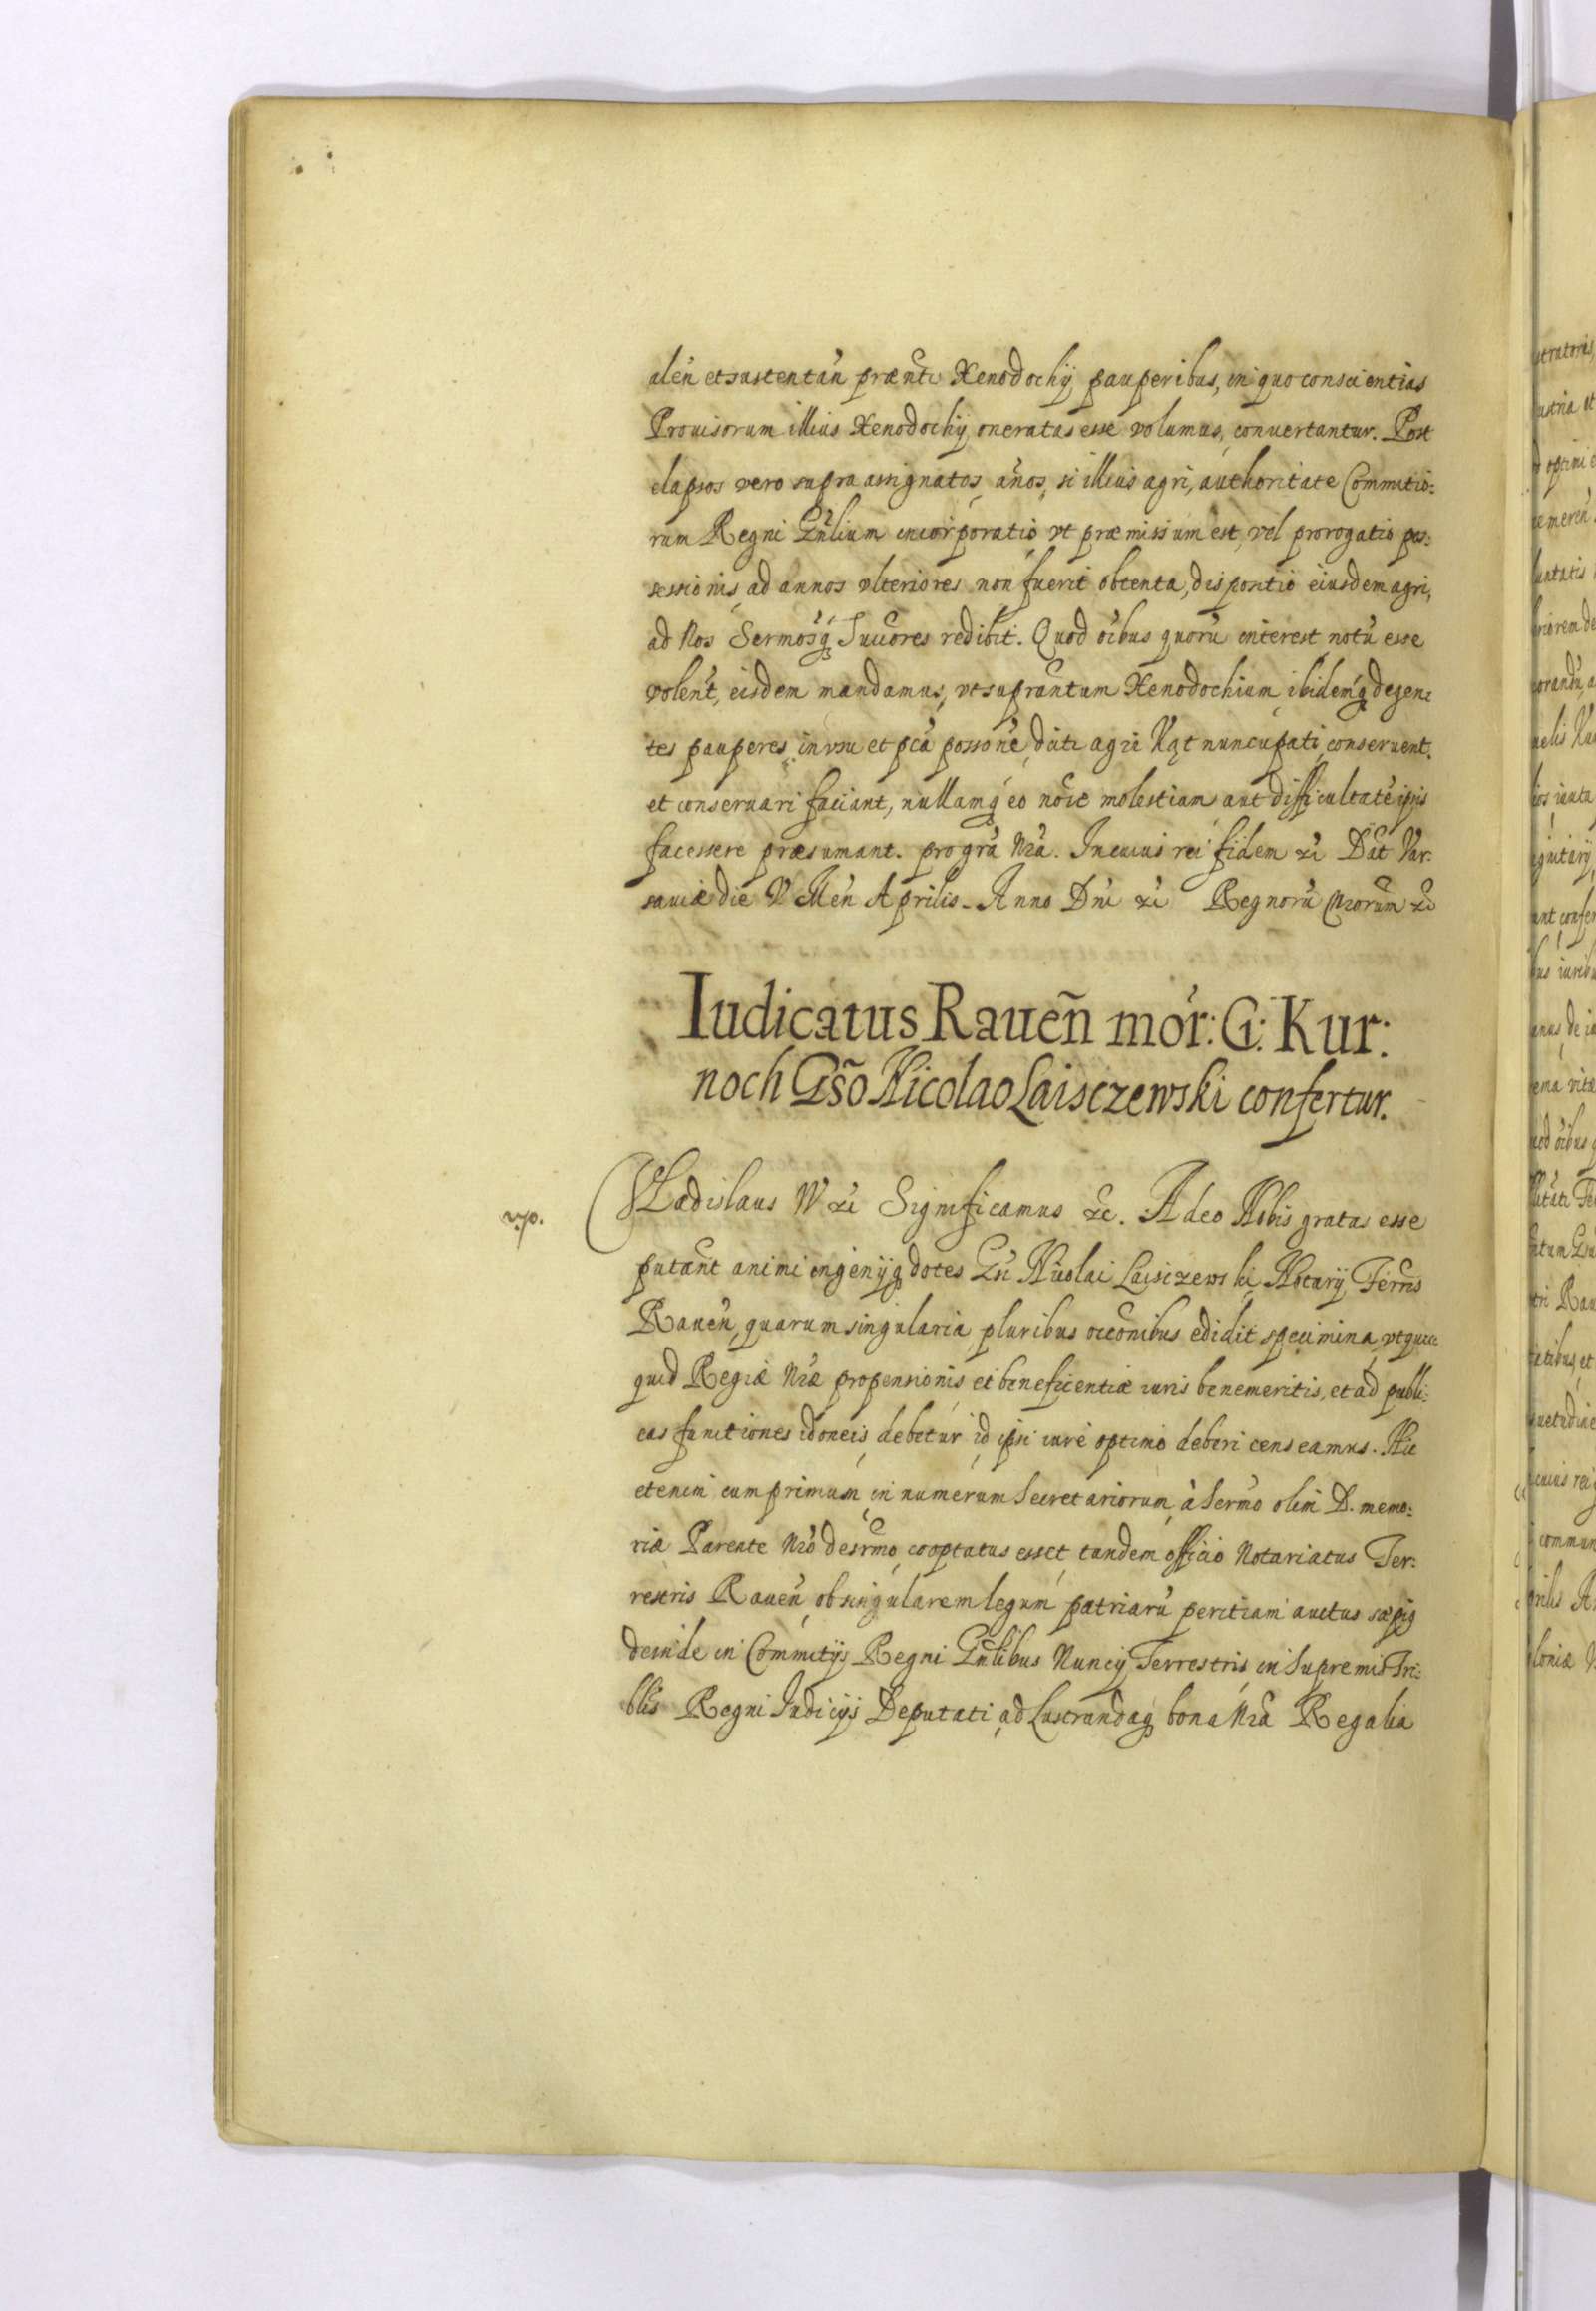 alen̄ et sustentan̄ præntĩ Xenodochÿ, pauperibus, in quo conscientias
Prouisorum illius Xenodochÿ oneratas esse volumus, conuertantur. Post
elapsos vero supra assignatos an̄os, si illius agri, authoritate Commitio:
rum Regni Gñlium incorporatio, vt præmissum est, vel prorogatio pos:
sessionis, ad annos vlteriores non fuerit obtenta, dispositio eiusdem agri,
ad Nos Sermosq̃ Succores redibit. Quod oĩbus quorũ interest notũ esse
volent, eisdem mandamus, vt supran̄tum Xenodochium ibidemq̃ degen:
tes pauperes, in vsu et pcã possonẽ, dicti agri Kąt nuncupati, conseruent,
et conseruari faciant, nullamq̃ eo noĩe molestiam aut difficultatẽ ipsis
facessere præsumant. pro grã Nrã. In cuius rei fidem &c Dat Var:
sauiæ die V Men̄ Aprilis Anno Dnĩ &c Regnorũ Nrorum &c
Iudicatus Rauen̄ mor: G: Kur:
noch Gs̃o Nicolao Laisczewski confertur.
270.
VLadislaus IV &c Significamus &c. Adeo Nobis gratas esse
putant animi ingenÿq̃ dotes Gsĩ Nicolai Laisczewski, Notarÿ Terrĩs
Rauen̄, quarum singularia pluribus occonibus edidit specimina, vt quic:
quid Regiæ Nræ propensionis et beneficentiæ iuris benemeritis, et ad publi:
cas functiones idoneis, debetur id ipsi iure optimo deberi censeamus. Hic
etenim cum primum in numerum Secretariorum à Sermo olim D. memo:
riæ Parente Nro desrmo, cooptatus esset, tandem officio Notariatus Ter:
restris Rauen̄, ob singularem legum patriarũ peritiam auctus sæpiq̃
deinde in Commitÿs Regni Gñlibus Nuncÿ Terrestris, in Supremis Tri:
blis Regni Iudicÿs Deputati, ad Lustrandaq̃ bona Nrã Regalia